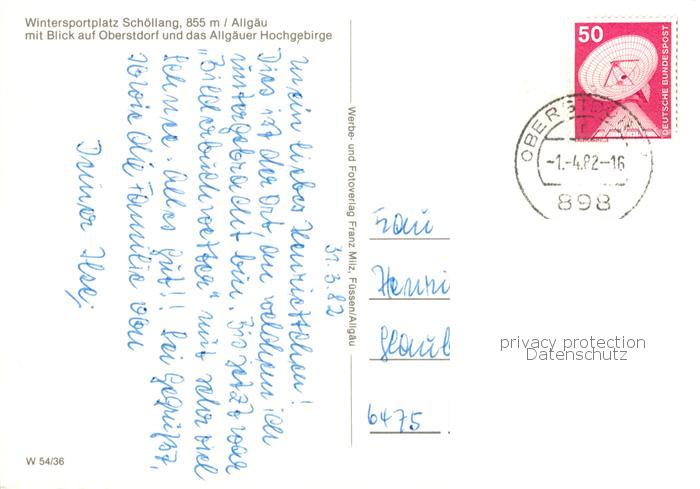 Wintersportplatz Schöllang, 855 m / Allgäu
mit Blick auf Oberstdorf und das Allgäuer Hochgebirge
31.3.82
Mein liebes Henriettchen!
Dies ist der Ort, an welchem ich
untergebracht bin. Bis jetzt war
"Bilderbuchwetter" mit sehr viel
Schnee. Alles gut!! Sei gegrüßt,
sowie die Familie von
Deiner Ilse;
Werbe- und Fotoverlag Franz Milz, Füssen/Allgäu
50
DEUTSCHE BUNDESPOST
OBERSTD
-1.-4.82-16
898
Frau
Henri
Glaub
6475
privacy protection
Datenschutz
W 54/36